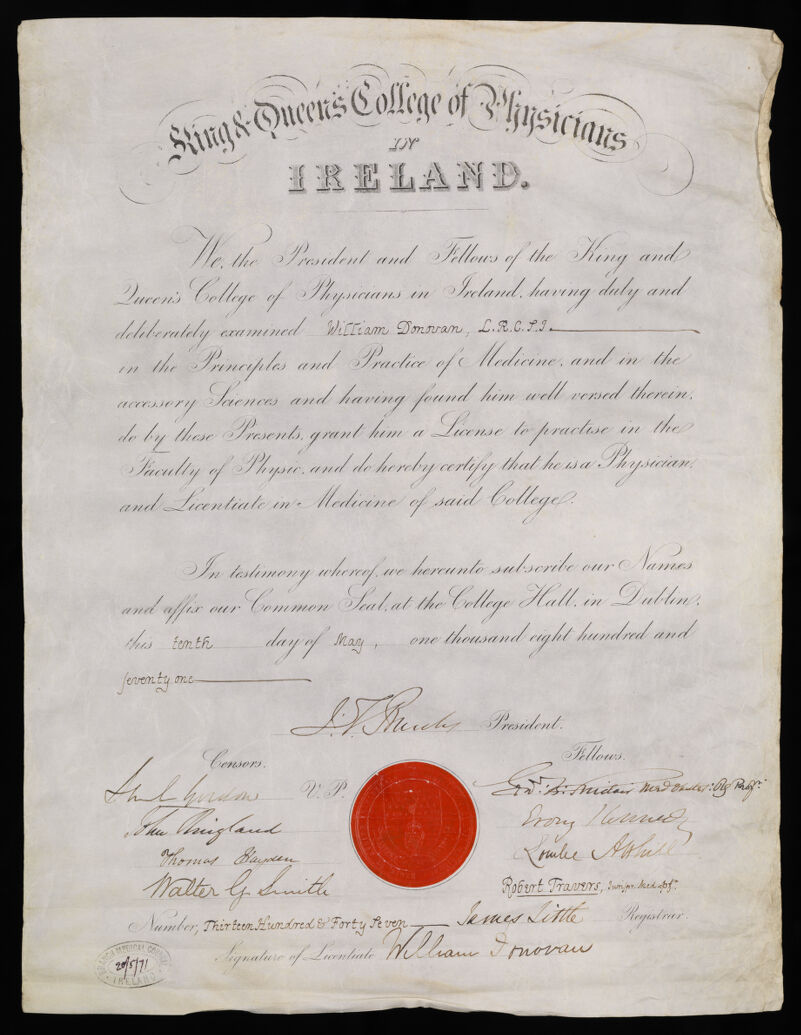 King & Queen's College of Physicians
IN
IRELAND.
We, the President and Fellows of the King and
Queen's College of Physicians in Ireland, having duly and
deliberately examined William Donovan, L.R.C.S.I.
in the Principles and Practice of Medicine, and in the
accessory Sciences and having found him well versed therein,
do by these Presents, grant him a License to practise in the
Faculty of Physic, and do hereby certify that he is a Physician,
and Licentiate in Medicine of said College.
In testimony whereof, we hereunto subscribe our Names
and affix our Common Seal, at the College Hall, in Dublin,
this tenth day of May, one thousand eight hundred and
seventy one
President.
Censors.
Fellows.
Saml Gordon V.P.
John Ringland
Evory Kennedy
Thomas Hayden
Lombe Atthill
Walter G. Smith
Robert Travers,
Number, Thirteen Hundred & Forty Seven James Little Registrar.
Signature of Licentiate William Donovan
BRANCH MEDICAL COUNCIL
20/5/71
IRELAND